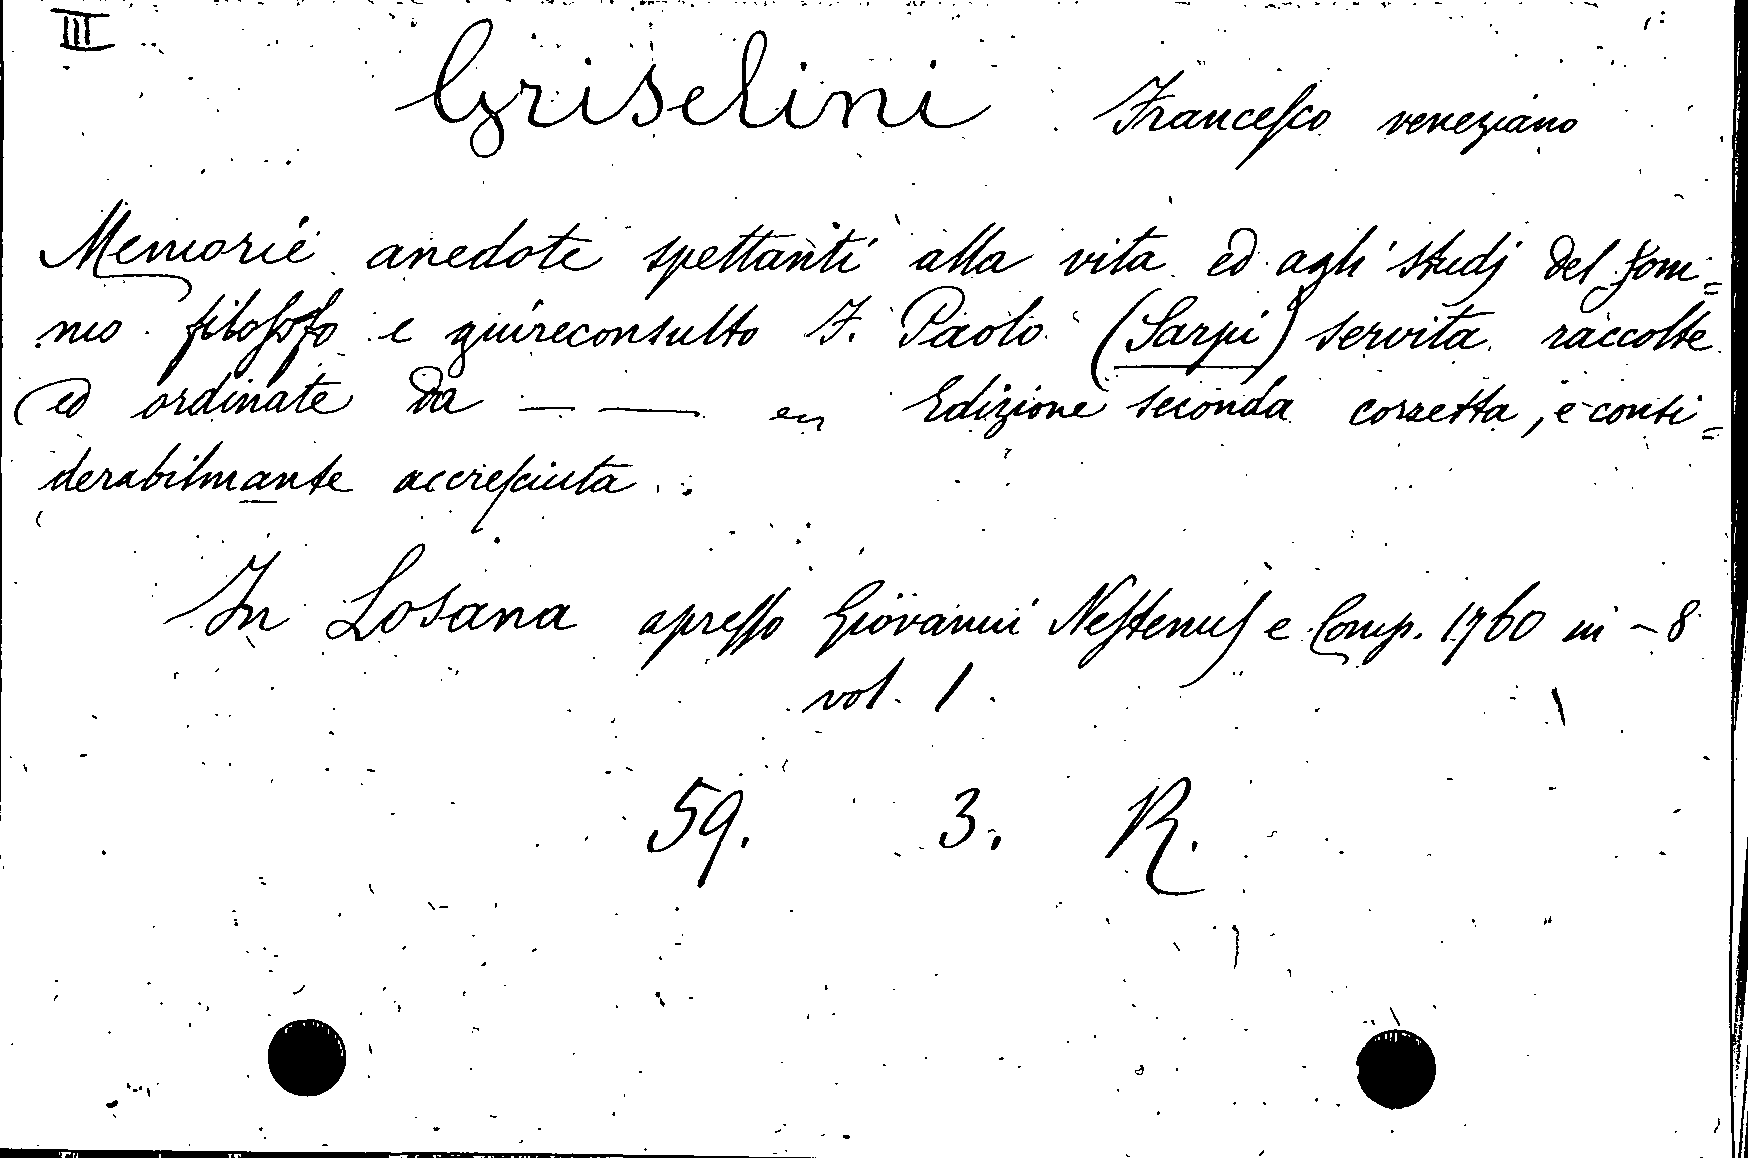 III
Griselini Francesco veneziano
Memorie anedote spettanti alla vita ed agli studj del som=
mo filosofo e giureconsulto F. Paolo (Sarpi) servita raccolte
ed ordinate da — — Edizione seconda corretta, e consi=
derabilmante accresciuta.
In Losana apresso Giovanni Nestenus e Comp. 1760 in-8
vol. 1.
59. 3. R.